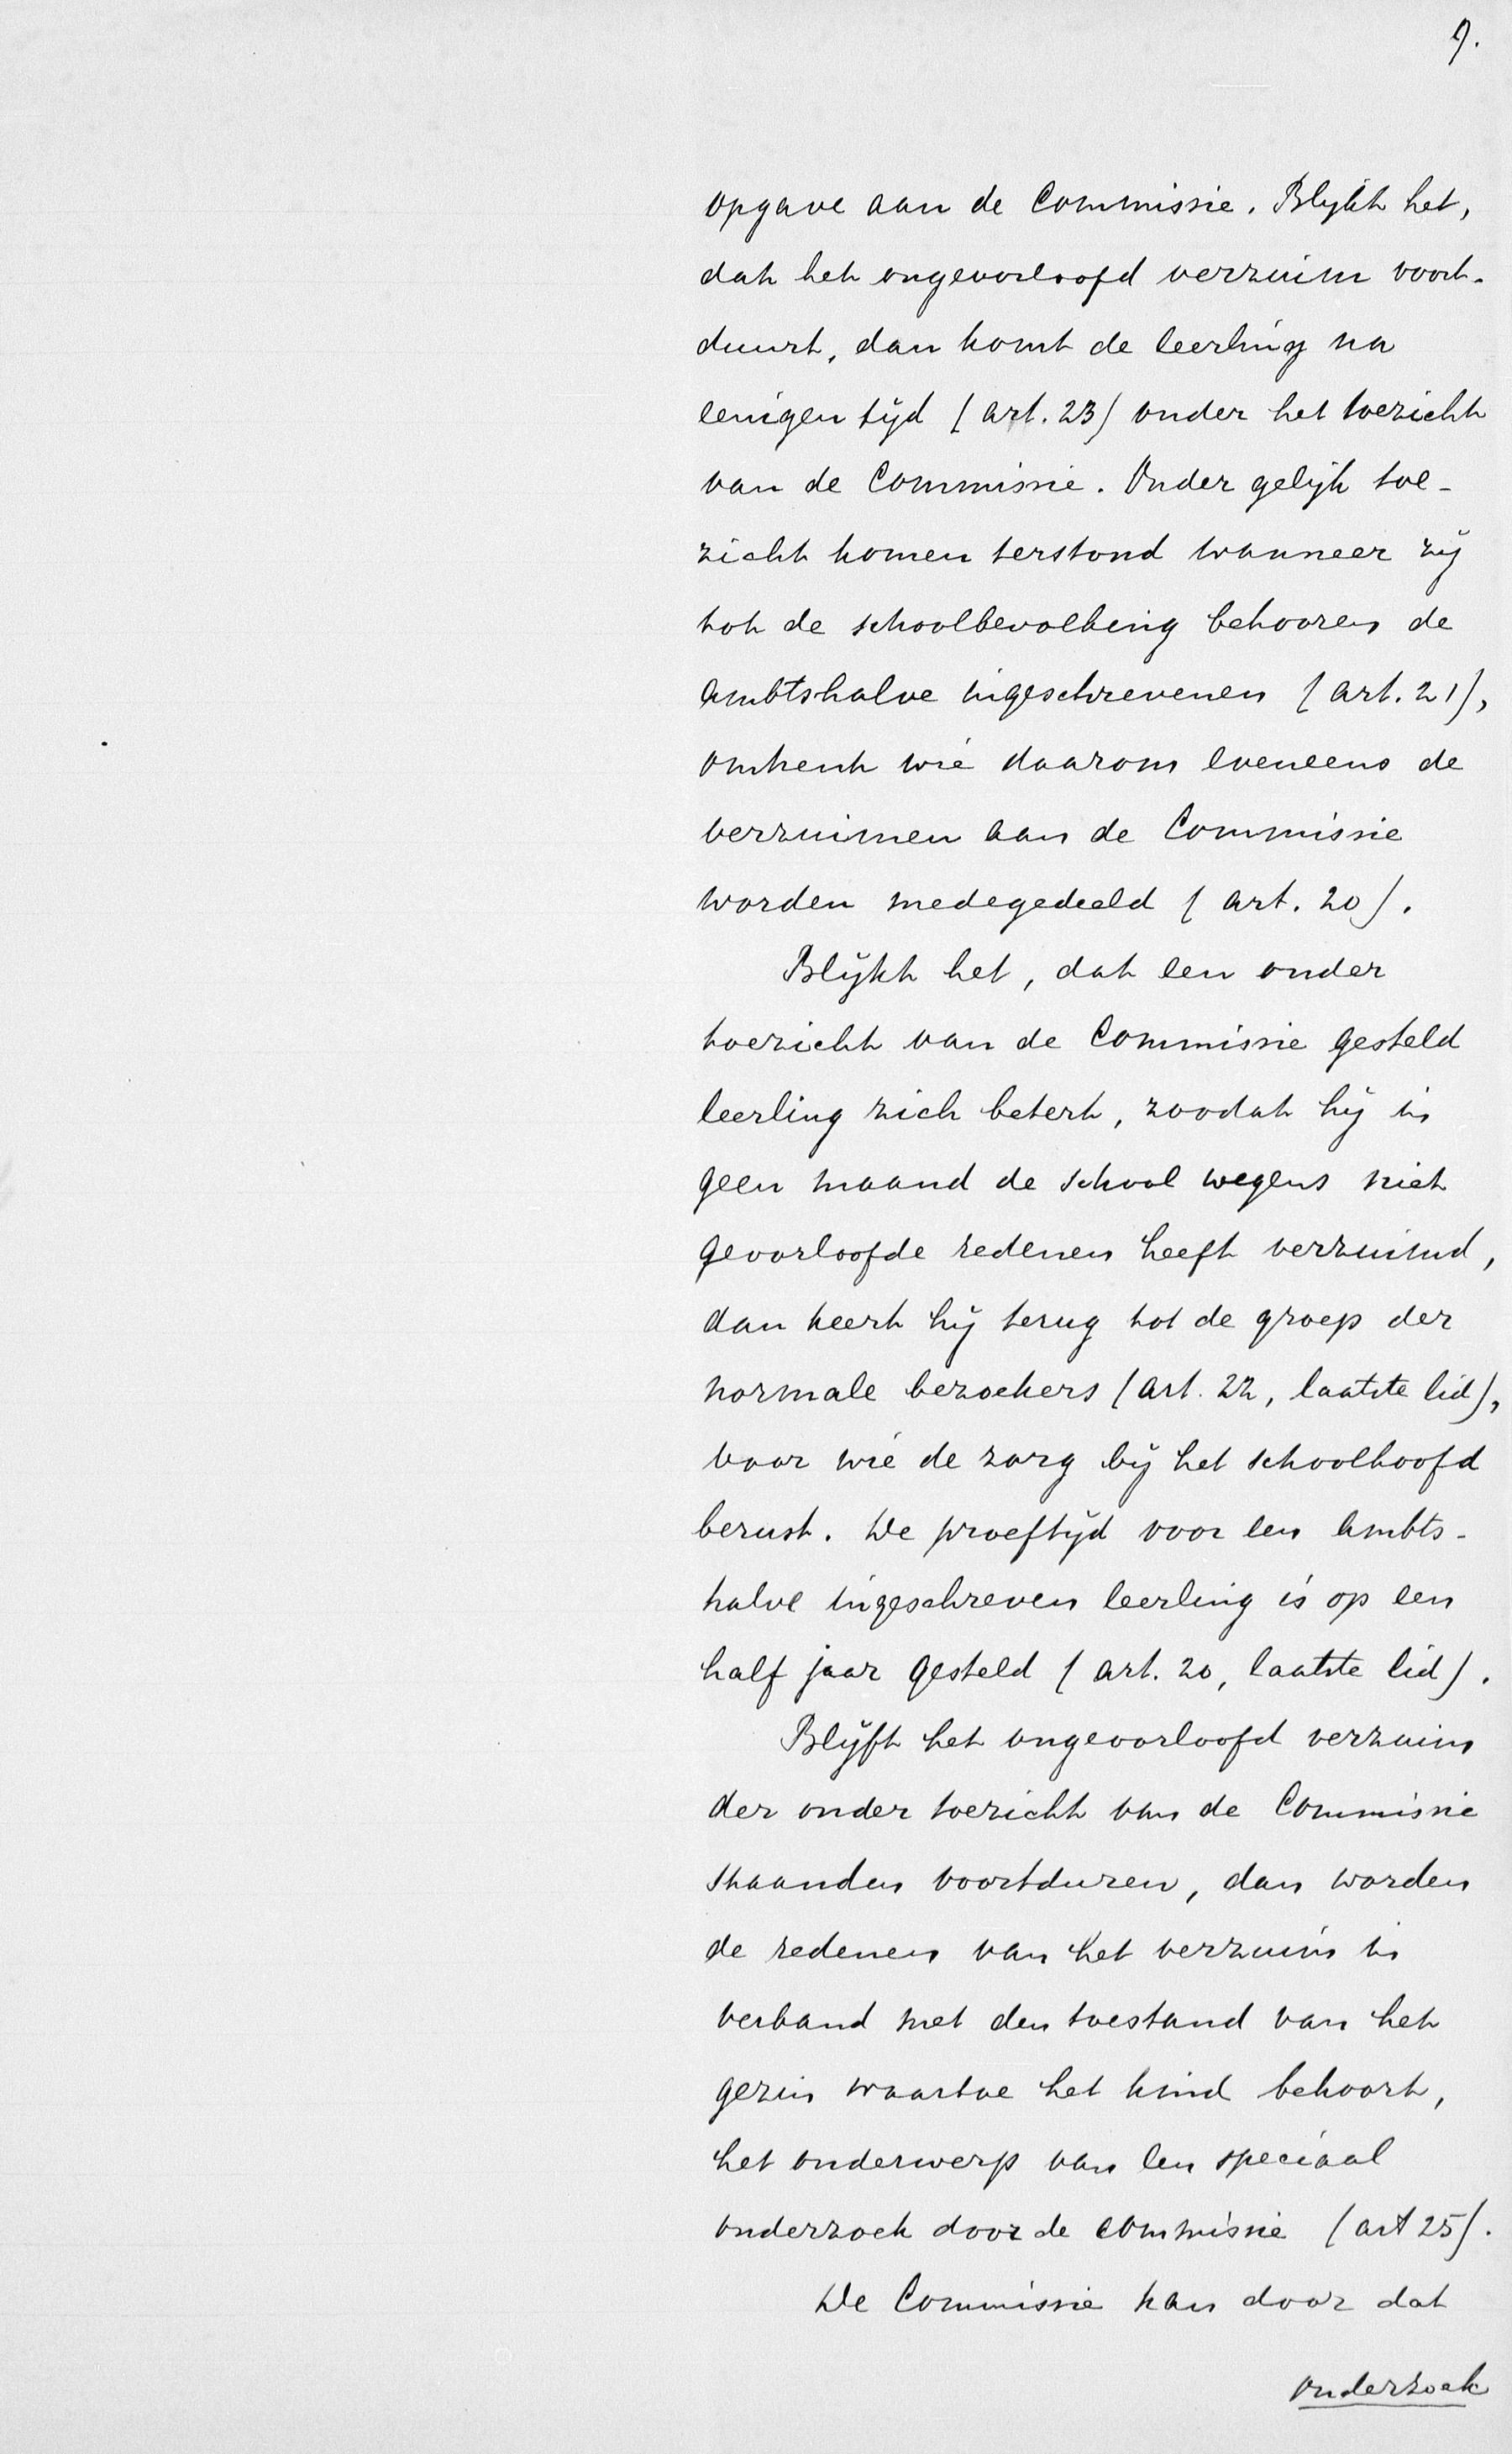 9.
opgave aan de Commissie. Blijkt het,
dat het ongeoorloofd verzuim voort-
duurt, dan komt de leerling na
eenigen tijd (art. 23) onder het toezicht
van de Commissie. Onder gelijk toe-
zicht komen terstond wanneer zij
tot de schoolbevolking behooren de
ambtshalve ingeschrevenen (art. 21),
omtrent wie daarom eveneens de
verzuimen aan de Commissie
worden medegedeeld (art. 20).
Blijkt het, dat een onder
toezicht van de Commissie gesteld
leerling zich betert, zoodat hij in
geen maand de school wegens niet
geoorloofde redenen heeft verzuimd,
dan keert hij terug tot de groep der
normale bezoekers (art. 22, laatste lid),
voor wie de zorg bij het schoolhoofd
berust. De proeftijd voor een ambts-
halve ingeschreven leerling is op een
half jaar gesteld (art. 20, laatste lid).
Blijft het ongeoorloofd verzuim
der onder toezicht van de Commissie
staanden voortduren, dan worden
de redenen van het verzuim in
verband met den toestand van het
gezin waartoe het kind behoort,
het onderwerp van een speciaal
onderzoek door de commissie (art 25).
De Commissie kan door dat
onderzoek